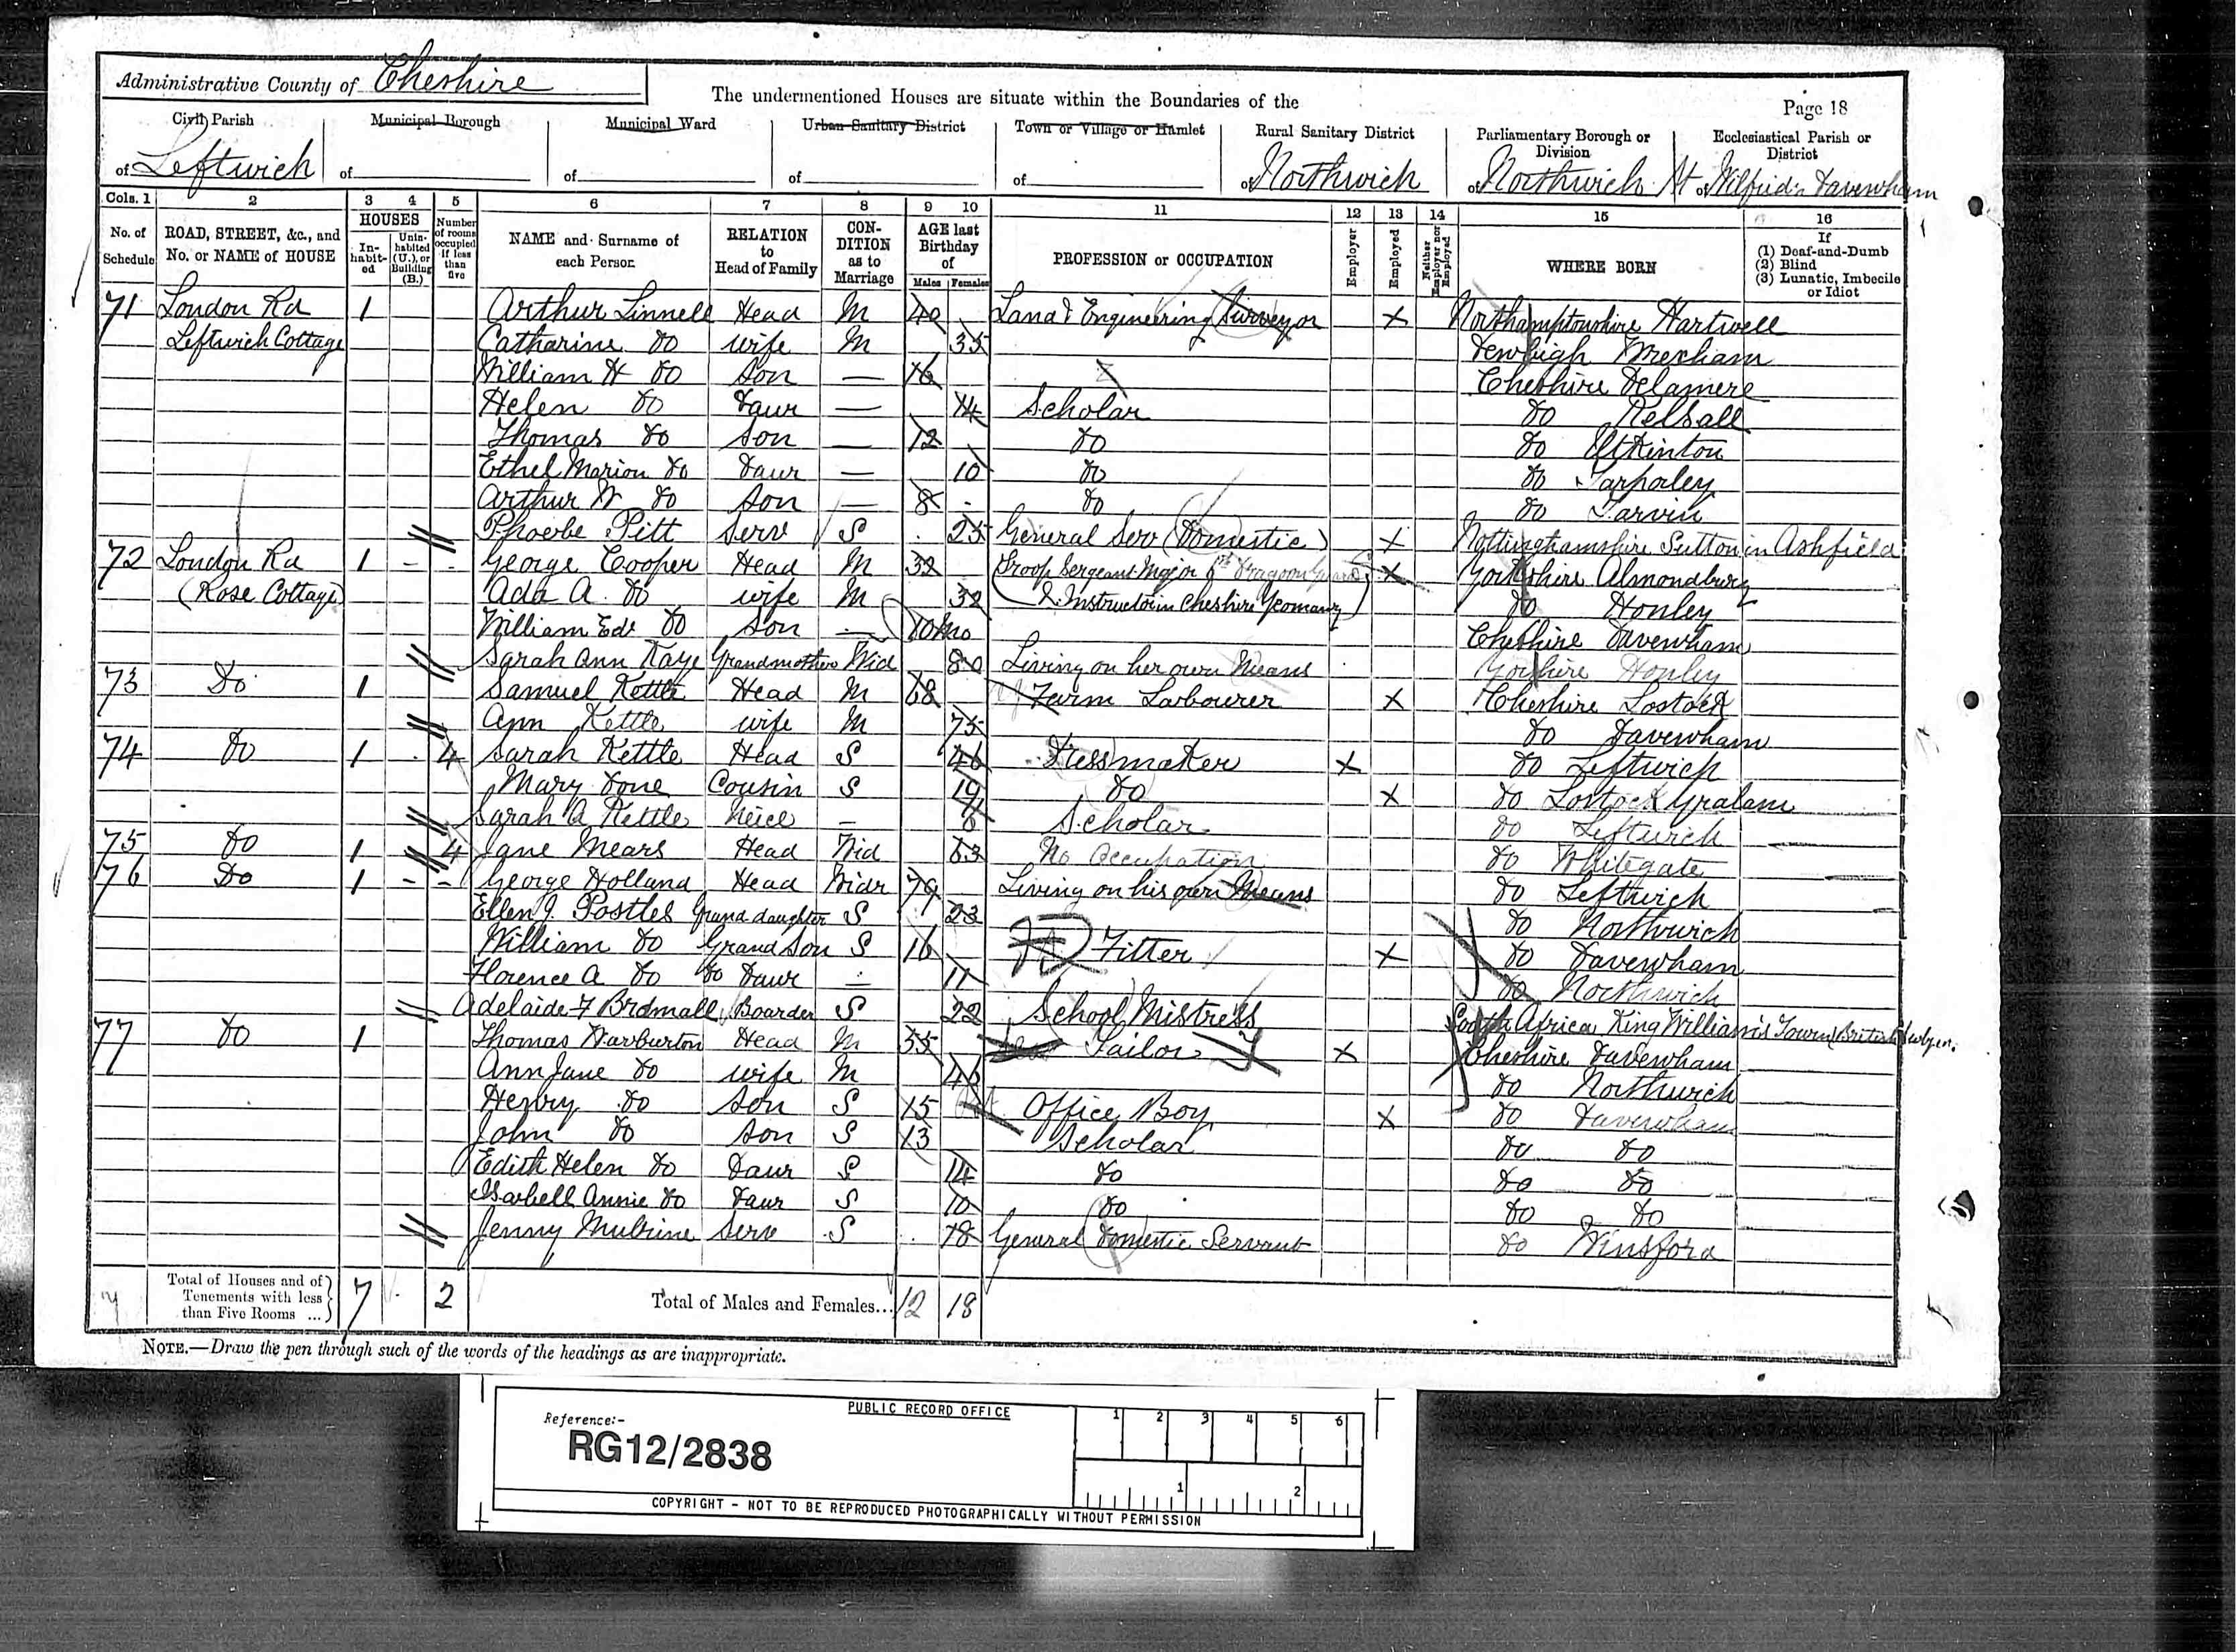 Administrative County of Cheshire
The undermentioned Houses are situate within the Boundaries of the
Page 18
Civil Parish of Leftwich
Municipal Borough of
Municipal Ward of
Urban Sanitary District of
Town or Village or Hamlet of
Rural Sanitary District of Northwich
Parliamentary Borough or Division of Northwich
Ecclesiastical Parish or District of St Wilfrid's Davenham
Cols. 1 2 3 4 5 6 7 8 9 10 11 12 13 14 15 16
No. of Schedule
ROAD, STREET, &c., and No. or NAME of HOUSE
HOUSES
In-habit-ed
Unin-habited (U.), or Building (B.)
Number of rooms occupied if less than five
NAME and Surname of each Person
RELATION to Head of Family
CON-DITION as to Marriage
AGE last Birthday of
Males Females
PROFESSION or OCCUPATION
Employer
Employed
Neither Employer nor Employed
WHERE BORN
If (1) Deaf-and-Dumb (2) Blind (3) Lunatic, Imbecile or Idiot
71 London Rd 1 Arthur Linnell Head M 40 Land & Engineering Surveyor X Northamptonshire Hartwell
Leftwich Cottage Catharine Do wife M 35 Denbigh Wrexham
William H Do Son — 16 Cheshire Delamere
Helen Do Daur — 14 Scholar Do Kelsall
Thomas Do Son — 12 Do Do Utkinton
Ethel Marion Do Daur — 10 Do Do Tarporley
Arthur W Do Son — 8 Do Do Tarvin
Phoebe Pitt Serv S 25 General Serv (Domestic) X Nottinghamshire Sutton in Ashfield
72 London Rd 1 George Cooper Head M 32 (Troop Sergeant Major Dragoon Guards X Yorkshire Almondbury
(Rose Cottage) Ada A. Do wife M 32 & Instructor in Cheshire Yeomanry) Do Honley
William Edr Do Son — 10 mo Cheshire Davenham
Sarah Ann Kaye Grandmother Wid 80 Living on her own Means Yorkshire Honley
73 Do 1 Samuel Kettle Head M 68 Farm Labourer X Cheshire Lostock
Ann Kettle wife M 75 Do Davenham
74 Do 1 4 Sarah Kettle Head S 46 Dressmaker X Do Leftwich
Mary Done Cousin S 19 Do X Do Lostock Gralam
Sarah A Kettle Neice — 6 Scholar Do Leftwich
75 Do 1 4 Jane Mears Head Wid 63 No Occupation Do Whitegate
76 Do 1 George Holland Head Widr 79 Living on his own Means Do Leftwich
Ellen J. Postles Grand daughter S 23 Do Northwich
William Do Grand Son S 16 Fitter X Do Davenham
Florence A Do Do Daur 11 Do Northwich
Adelaide F Bromall Boarder S 22 School Mistress South Africa King William's Town (British Subject.
77 Do 1 Thomas Warburton Head M 35 Tailor X Cheshire Davenham
Ann Jane Do wife M 46 Do Northwich
Henry Do Son S 15 Office Boy X Do Davenham
John Do Son S 13 Scholar Do Do
Edith Helen Do Daur S 14 Do Do Do
Isabell Annie Do Daur S 10 Do Do Do
Jenny Mulrine Serv S 18 General Domestic Servant Do Winsford
Total of Houses and of Tenements with less than Five Rooms ... 7 2 Total of Males and Females... 12 18
NOTE.—Draw the pen through such of the words of the headings as are inappropriate.
PUBLIC RECORD OFFICE
Reference:-
RG12/2838
1 2 3 4 5 6
1 2
COPYRIGHT - NOT TO BE REPRODUCED PHOTOGRAPHICALLY WITHOUT PERMISSION